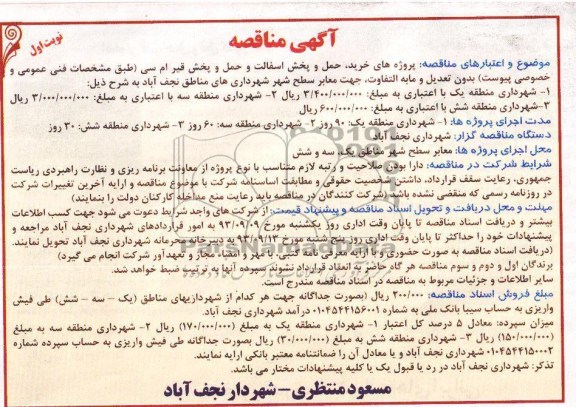 آگهی مناقصه
نوبت اول
موضوع و اعتبارهای مناقصه: پروژه های خرید، حمل و پخش اسفالت و حمل و پخش قیر ام سی (طبق مشخصات فنی عمومی و
خصوصی پیوست) بدون تعدیل و مابه التفاوت، جهت معابر سطح شهر شهرداری های مناطق نجف آباد به شرح ذیل:
۱- شهرداری منطقه یک با اعتباری به مبلغ: ۳/۴۰۰/۰۰۰/۰۰۰ ریال ۲- شهرداری منطقه سه با اعتباری به مبلغ: ۳/۰۰۰/۰۰۰/۰۰۰ ریال
۳-شهرداری منطقه شش با اعتباری به مبلغ: ۶۰۰/۰۰۰/۰۰۰ریال
مدت اجرای پروژه ها: ۱- شهرداری منطقه یک: ۹۰ روز ۲- شهرداری منطقه سه: ۶۰ روز ۳- شهرداری منطقه شش: ۳۰ روز
دستگاه مناقصه گزار: شهرداری نجف آباد
محل اجرای پروژه ها: معابر سطح شهر مناطق یک، سه و شش
شرایط شرکت در مناقصه: دارا بودن صلاحیت و رتبه لازم متناسب با نوع پروژه از معاونت برنامه ریزی و نظارت راهبردی ریاست
جمهوری، رعایت سقف قرارداد، داشتن شخصیت حقوقی و مطابقت اساسنامه شرکت با موضوع مناقصه و ارایه آخرین تغییرات شرکت
در روزنامه رسمی که منقضی نشده باشد (شرکت کنندگان در مناقصه باید رعایت منع مداخله کارکنان دولت را بنمایند)
مهلت و محل دریافت و تحویل اسناد مناقصه و پیشنهاد قیمت: از شرکت های واجد شرایط دعوت می شود جهت کسب اطلاعات
بیشتر و دریافت اسناد مناقصه تا پایان وقت اداری روز یکشنبه مورخ ۹۳/۰۹/۰۹ به امور قراردادهای شهرداری نجف آباد مراجعه و
پیشنهادات خود را حداکثر تا پایان وقت اداری روز پنج شنبه مورخ ۹۳/۰۹/۱۳ به دبیرخانه محرمانه شهرداری نجف آباد تحویل نمایند.
(دریافت اسناد مناقصه به صورت حضوری و با ارایه معرفی نامه کتبی، با مهر و امضا مجاز و تعهد آور شرکت انجام می گیرد)
برندگان اول و دوم و سوم مناقصه هر گاه حاضر به انعقاد قرارداد نشوند سپرده آنها به ترتیب ضبط خواهد شد.
سایر اطلاعات و جزئیات مربوط به مناقصه در اسناد مناقصه مندرج است.
مبلغ فروش اسناد مناقصه: ۲۰۰/۰۰۰ ریال (بصورت جداگانه جهت هر کدام از شهرداریهای مناطق (یک – سه – شش) طی فیش
واریزی به حساب سیبا بانک ملی به شماره ۰۱۰۴۵۴۴۱۵۶۰۰۱ درآمد شهرداری نجف آباد.
میزان سپرده: معادل ۵ درصد کل اعتبار ۱- شهرداری منطقه یک به مبلغ (۱۷۰/۰۰۰/۰۰۰) ریال ۲- شهرداری منطقه سه به مبلغ
(۱۵۰/۰۰۰/۰۰۰) ریال ۳- شهرداری منطقه شش به مبلغ (۳۰/۰۰۰/۰۰۰) ریال بصورت جداگانه طی فیش واریزی به حساب سپرده شماره
۰۱۰۴۵۴۴۱۵۰۰۰۲ شهرداری نجف آباد و یا معادل آن را ضمانتنامه معتبر بانکی ارایه نمایند.
تذکر: شهرداری نجف آباد در رد یا قبول یک یا کلیه پیشنهادات مختار می باشد.
مسعود منتظری – شهردار نجف آباد